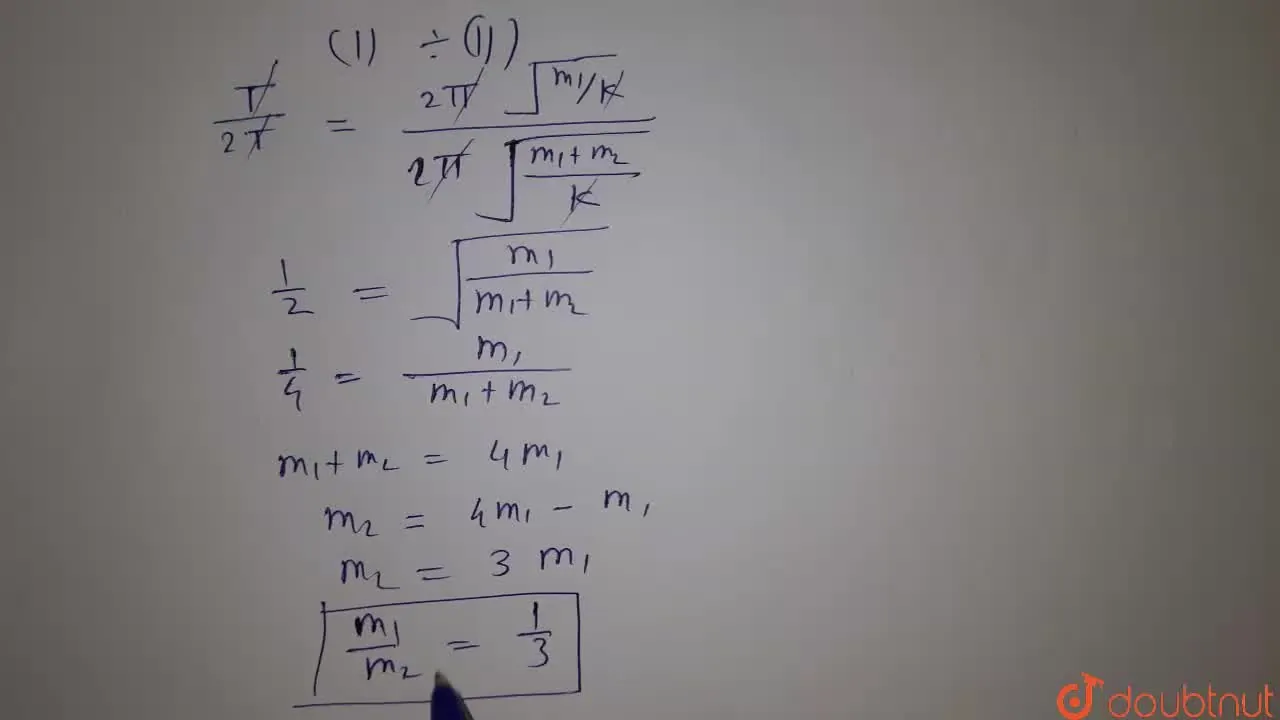 (1) ÷ (11)
T/2T = 2π√(m₁/K) / 2π√((m₁+m₂)/K)
1/2 = √(m₁/(m₁+m₂))
1/4 = m₁/(m₁+m₂)
m₁+m₂ = 4m₁
m₂ = 4m₁ - m₁
m₂ = 3 m₁
m₁/m₂ = 1/3
doubtnut